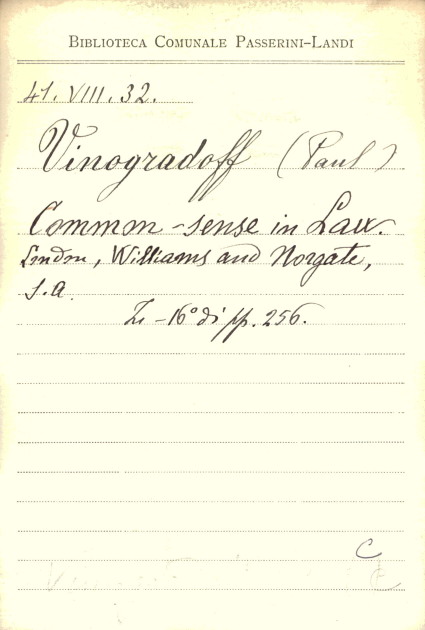 BIBLIOTECA COMUNALE PASSERINI-LANDI
41. VIII. 32.
Vinogradoff (Paul)
Common-sense in Law.
London, Williams and Norgate,
s.a.
In-16° di pp. 256.
C